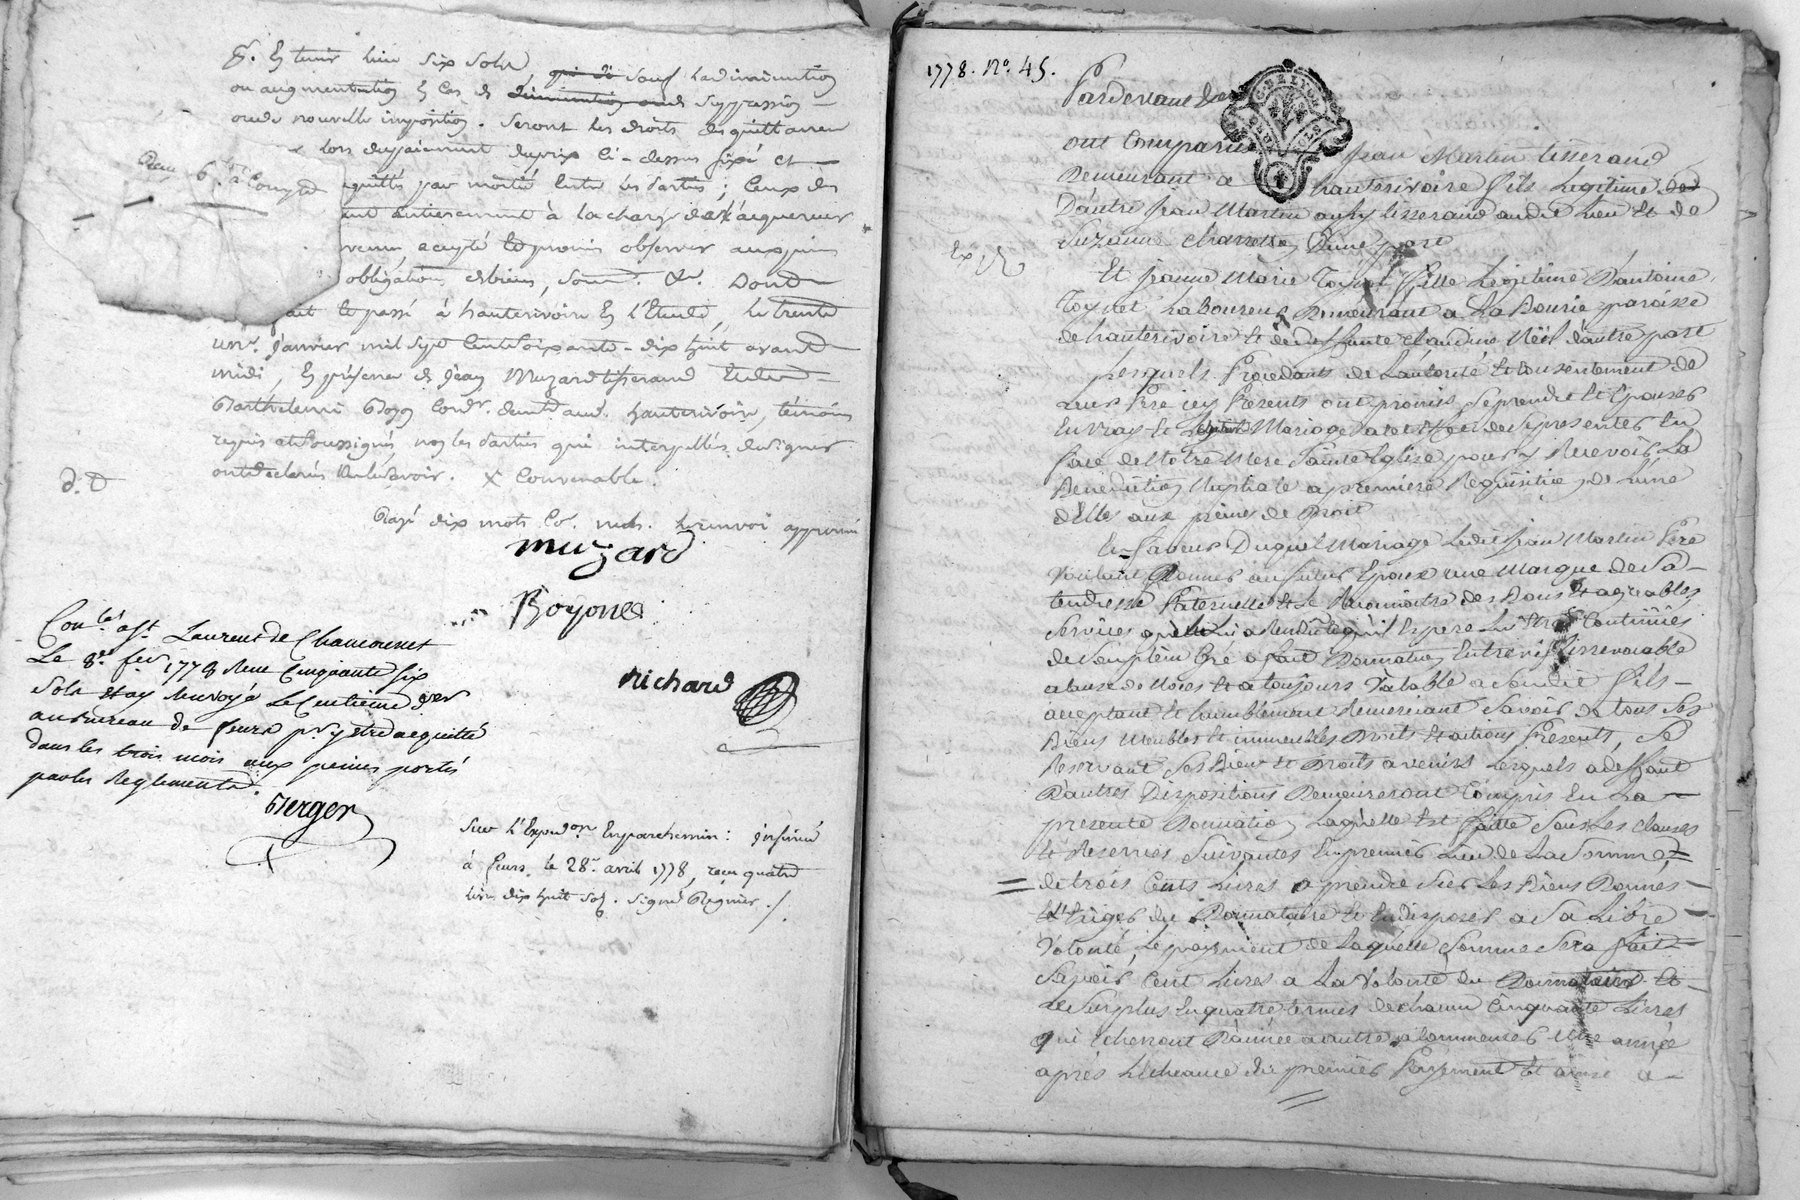 En tenir lieu six sols, qui di sauf la diminution
ou augmentation En Cas de diminution ou de suppression
ou de nouvelle imposition. seront les droits de quittances
lors du paiement du prix ci-dessus fixé et
Reçu 6 à Compte
acquittés par moitié Entre les parties; Ceux des
entierement à la charge de l'acquereur
accepté Et promis observer aux peines
obligation, de biens, soum. &c. Dont
fait Et passé à hauterivoire En L'Etude, Le trente
un Janvier mil sept Cent soixante-dix huit avant
midi, En présence de Jean Muzard tisserand Et de
Barthelemi hauterivoire, témoins
requis et soussignés, non les parties qui interpellées de signer
ont declarés ne le savoir. X Convenable.
d. D
Rayé dix mots Le renvoi approuvé
muzard
Boyones
richard
Con.lé à St. Laurent de Chamousset
Le 8e fev 1778 Reçu Cinquante six
Sols et ay renvoyé Le Centieme d.er
au Bureau de feurs pr. y etre acquitté
dans les trois mois aux peines portés
par les Reglements.
Berger
Sur l'Expedon En parchemin: insinué
à feurs, le 28e avril 1778, reçu quatre
livres dix huit sols. signé Regnier ./.
1778. No. 45.
Pardevant
ont Comparus Jean Martin tisserand
Demeurant a hauterivoire fils Legitime de
D'autre Jean Martin aussy tisserand audit Lieu Et de
Suzanne Chassette D'une part
Ex
Et Jeanne Marie Toynet fille Legitime D'antoine
Toynet Laboureur Demeurant a La Bourie paroisse
de hauterivoire Et de deffunte Claudine Néel d'autre part
Lesquels Procedants de L'autorité Et Consentement de
Leurs Pere icy Presents ont promis se prendre Et Epouser
En vray Et Legitime Mariage a cet Effet de se presenter En
face de Notre Mere Sainte Eglise pour y Recevoir La
Benediction Nuptiale a premiere Requisition de L'une
d'Elles aux peines de Droit
En faveur Duquel Mariage Ledit Jean Martin Pere
Voulant Donner au futur Epoux une Marque de Sa
tendresse Paternelle Et Le Reconnoitre des Bons Et agreables
Services qu'il Lui a Rendu Et qu'il Espere Lui Etre Continués
de Son plein Gré a fait Donnation Entre vifs Irrevocable
a Cause de Noces Et a toujours Valable a Sondit fils
acceptant Et humblement Remerciant Savoir de tous ses
Biens Meubles Et immeubles Droits Et actions Presents, Se
Reservant Ses Biens Et Droits a venirs Lesquels a deffaut
D'autres Dispositions Demeureront Compris En La
presente Donnation, Laquelle Est faitte Sous Les Clauses
Et Reserves Suivantes En premier Lieu de La Somme
de trois Cents Livres a prendre Sur Les Biens Donnés
Exiger du Donnataire Et En disposer a Sa Libre
Volonté, Le payement de Laquelle Somme Sera fait
Sçavoir Cent Livres a La Volonté du Donnataire Et
Le Surplus En quatre termes de chacun Cinquante Livres
qui Echerront D'année a autre a Commencer Une année
après L'Echeance du premier Payement Et ainsi a